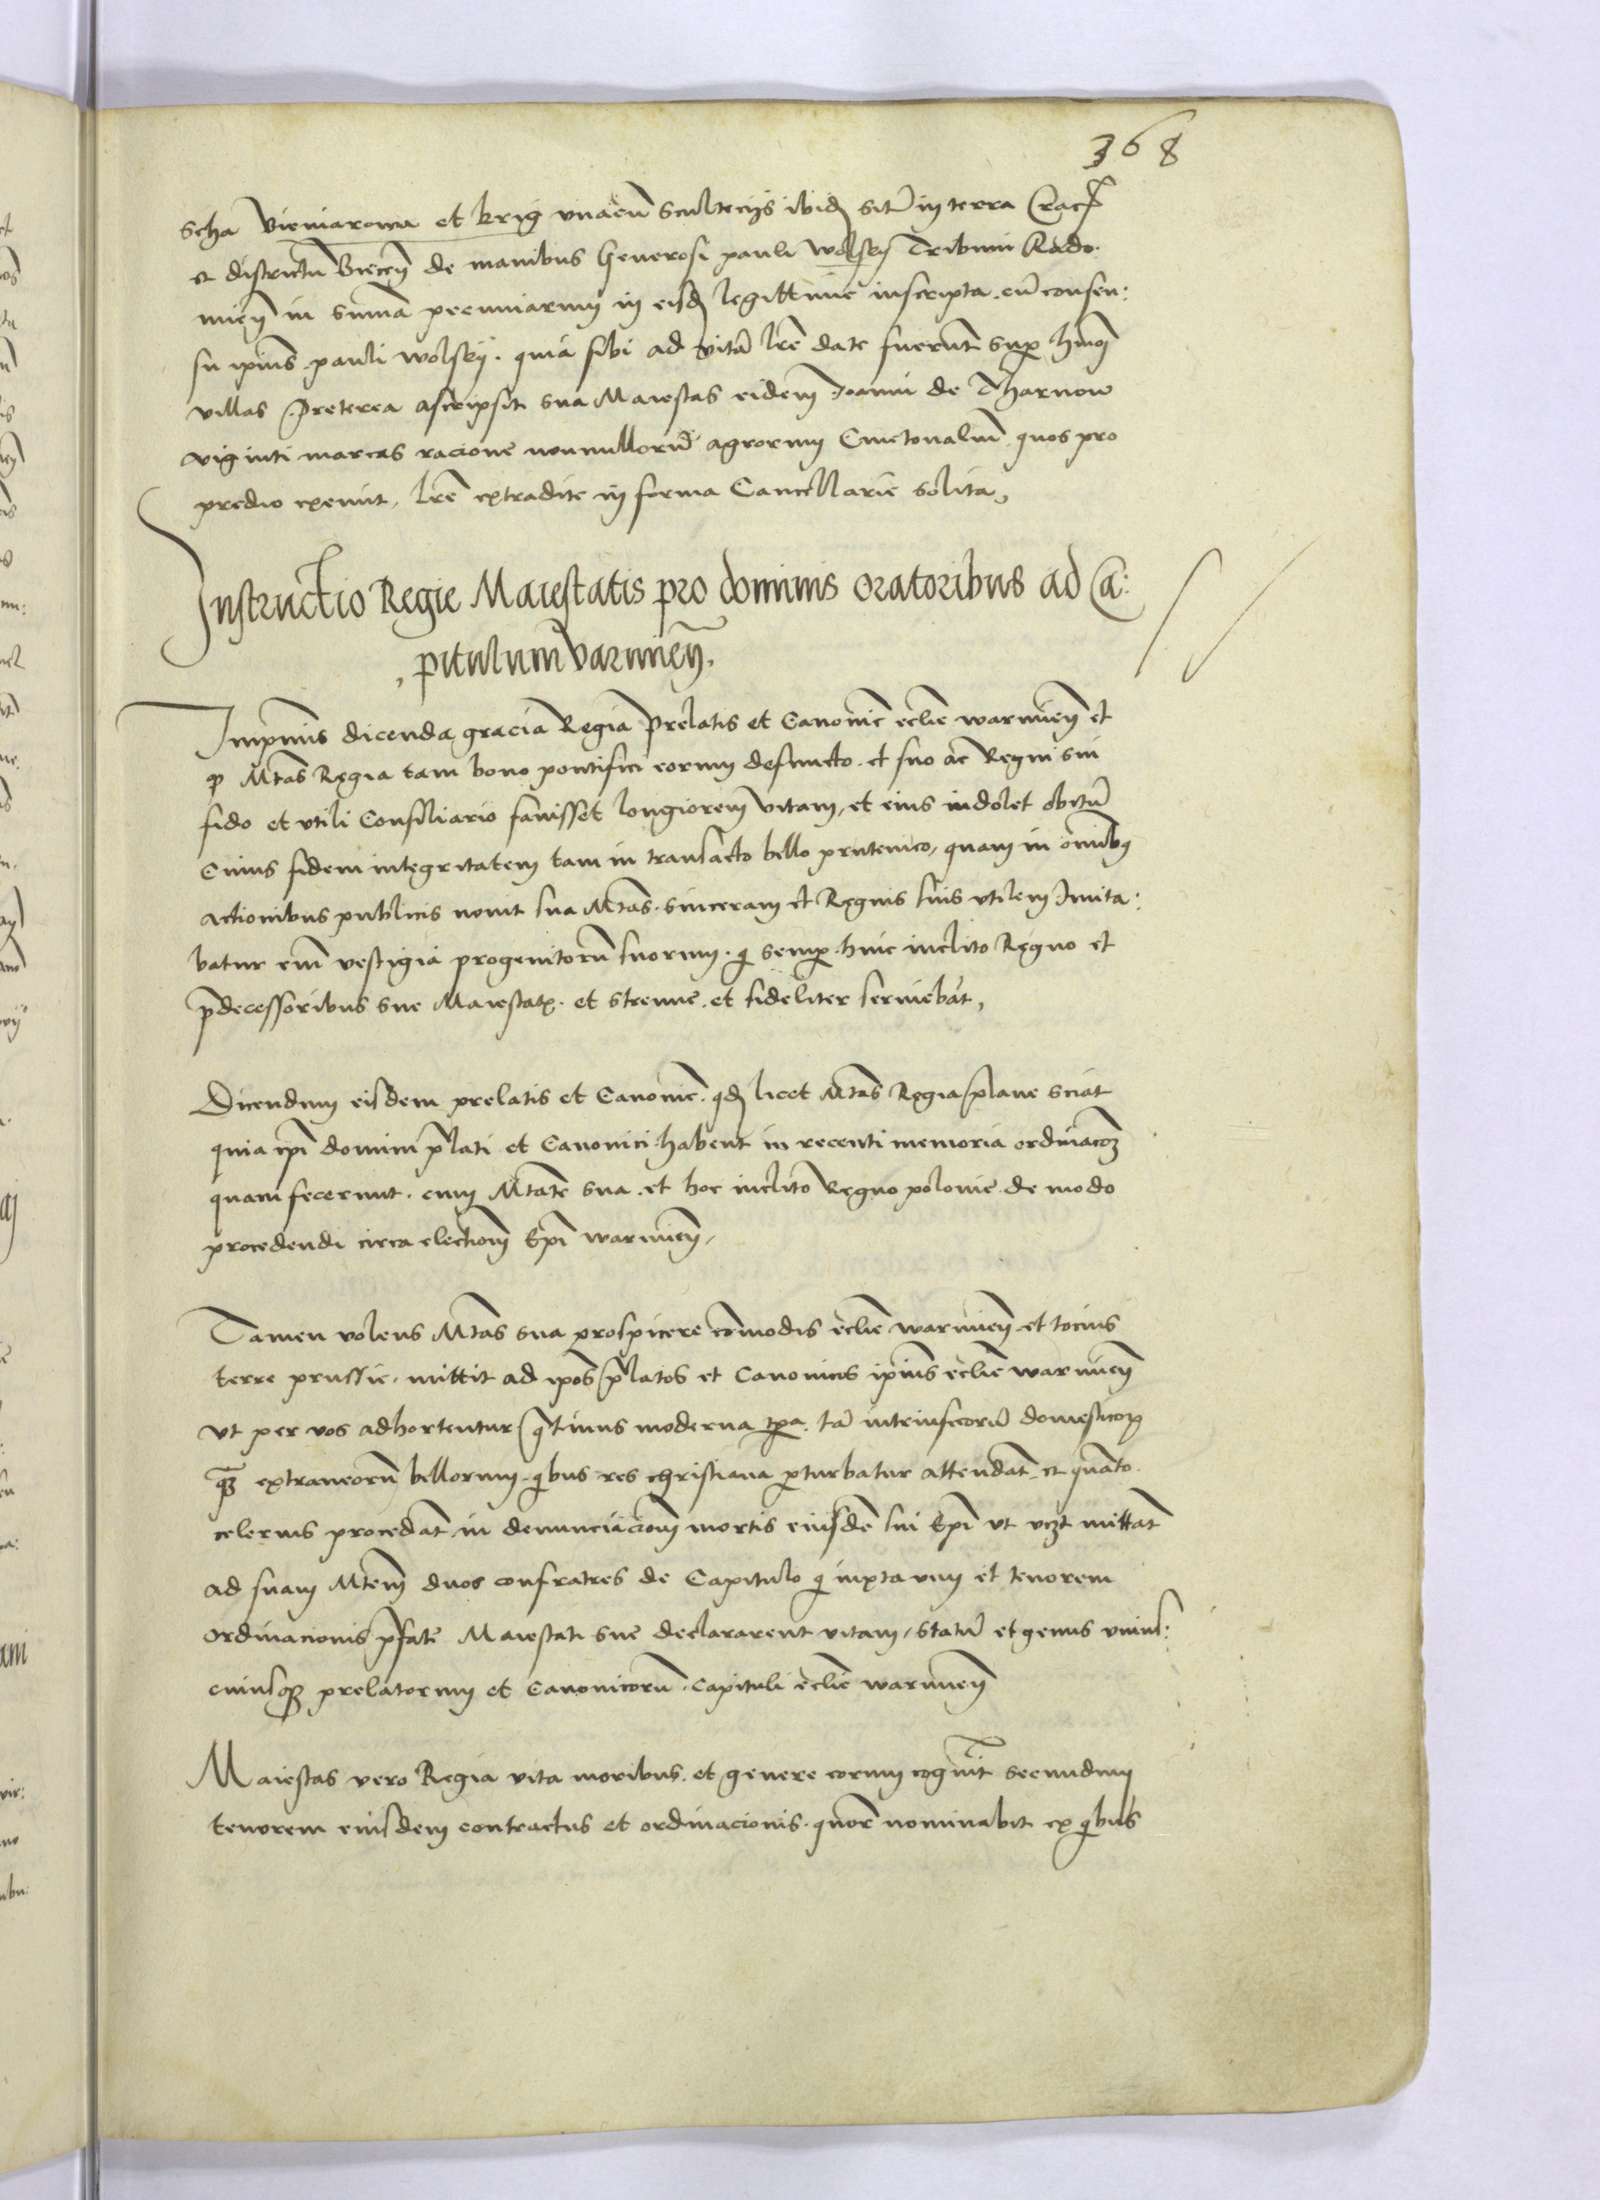 368
scha Vieniarowa et krig vnacu Scultecijs ibid sit in terra Crac
et districtu Biecen de manibus Generosi pauli Wolsky Tribuni Rado
mien in suma pecuniarum in eisd legittime inscripta. cu consen:
su ipius pauli wolsky. quia sibi ad vita lre date fuerunt sup hmoi
villas Preterea ascripsit sua Maiestas eidem Joanni de Tharnow
viginti marcas racione nonnulloru agrorum Cmetonaliu quos pro
predio exemit, lre extradite in forma Cancellarie solita,
Instructio Regie Maiestatis pro dominis oratoribus ad Ca:
pitulum Varmien.
Inprimis dicenda gracia Regia Prelatis et Canonic eclie warmien et
q Mtas Regia tam bono pontifici eorum defuncto. et suo ac Regni sui
fido et vtili Consiliario fauisset longiorem vitam, et eius indolet obitu
Cuius fidem integritatem tam in transacto bello prutenico, quam in omibus
actionibus publicis nouit sua Mtas. sinceram et Regnis suis vtilem Imita:
batur em vestigia progenitoru suorum. qi semp huic inclito Regno et
pdecessoribus sue Maiestatis. et strenue et fideliter seruiebat,
Dicendum eisdem prelatis et Canonic. qd licet Mtas Regia plane sciat
quia ipi domini plati et Canonici habent in recenti memoria ordinacoem
quam fecerunt. cum Mtate sua. et hoc inclito Regno polonie de modo
procedendi circa electiom Epi warmien,
Tamen volens Mtas sua prospicere comodis eclie warmien et tocius
terre prussie. mittit ad ipos platos et Canonicos ipius eclie warmien
vt per vos adhortentur qtinus moderna tpa. ta intrinsecoru domesticor
qz extraneoru bellorum. qibus res christiana pturbatur attendat et quato
celerius procedat in denunciaciom mortis eiusde sui Epi vt vczt mittat
ad suam Mtem duos confratres de Capitulo qi iuxta vim et tenorem
ordinacionis pfate Maiestati sue declararent vitam, statu et genus vnius:
cuiusqz prelatorum et Canonicoru Capituli eclie warmien
Maiestas vero Regia vita moribus. et genere eorum cognit secundum
tenorem eiusdem contractus et ordinacionis. quor nominabit ex qibus